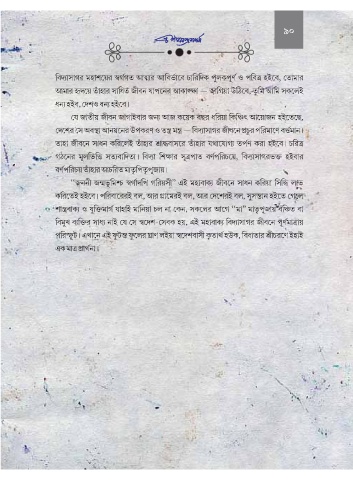 ৯০
বিদ্যাসাগর মহাশয়ের স্বর্গগত আত্মার আবির্ভাবে চারিদিক পুলকপূর্ণ ও পবিত্র হইবে, তোমার
আমার হৃদয়ে তাঁহার সাধিত জীবন যাপনের আকাঙ্ক্ষা — জাগিয়া উঠিবে, তুমি আমি সকলেই
ধন্য হইব, দেশও ধন্য হইবে।
যে জাতীয় জীবন জাগাইবার জন্য আজ কয়েক বছর ধরিয়া কিঞ্চিৎ আয়োজন হইতেছে,
দেশের সে অবস্থা আনয়নের উপকরণ ও তন্ত্র মন্ত্র — বিদ্যাসাগর জীবনে প্রচুর পরিমাণে বর্তমান।
তাহা জীবনে সাধন করিলেই তাঁহার শ্রাদ্ধবাসরে তাঁহার যথাযোগ্য তর্পণ করা হইবে। চরিত্র
গঠনের মূলভিত্তি সত্যবাদিতা। বিদ্যা শিক্ষার সূত্রপাত বর্ণপরিচয়ে, বিদ্যাসাগরভক্ত হইবার
বর্ণপরিচয় তাঁহার আচরিত মাতৃপিতৃপূজায়।
“জননী জন্মভূমিশ্চ স্বর্গাদপি গরিয়সী” এই মহাবাক্য জীবনে সাধন করিয়া সিদ্ধি লাভ
করিতেই হইবে। পরিবারেরই বল, আর গ্রামেরই বল, আর দেশেরই বল, সুসন্তান হইতে গেলে
শাস্ত্রবাক্য ও যুক্তিমার্গ যাহাই মানিয়া চল না কেন, সকলের আগে “মা” মাতৃপূজায় বঞ্চিত বা
বিমুখ ব্যক্তির সাধ্য নাই যে সে স্বদেশ-সেবক হয়, এই মহাবাক্য বিদ্যাসাগর জীবনে পূর্ণমাত্রায়
পরিস্ফুট। এখানে এই ফুটন্ত ফুলের ঘ্রাণ লইয়া স্বদেশবাসী কৃতার্থ হউক, বিধাতার শ্রীচরণে ইহাই
একমাত্র প্রার্থনা।